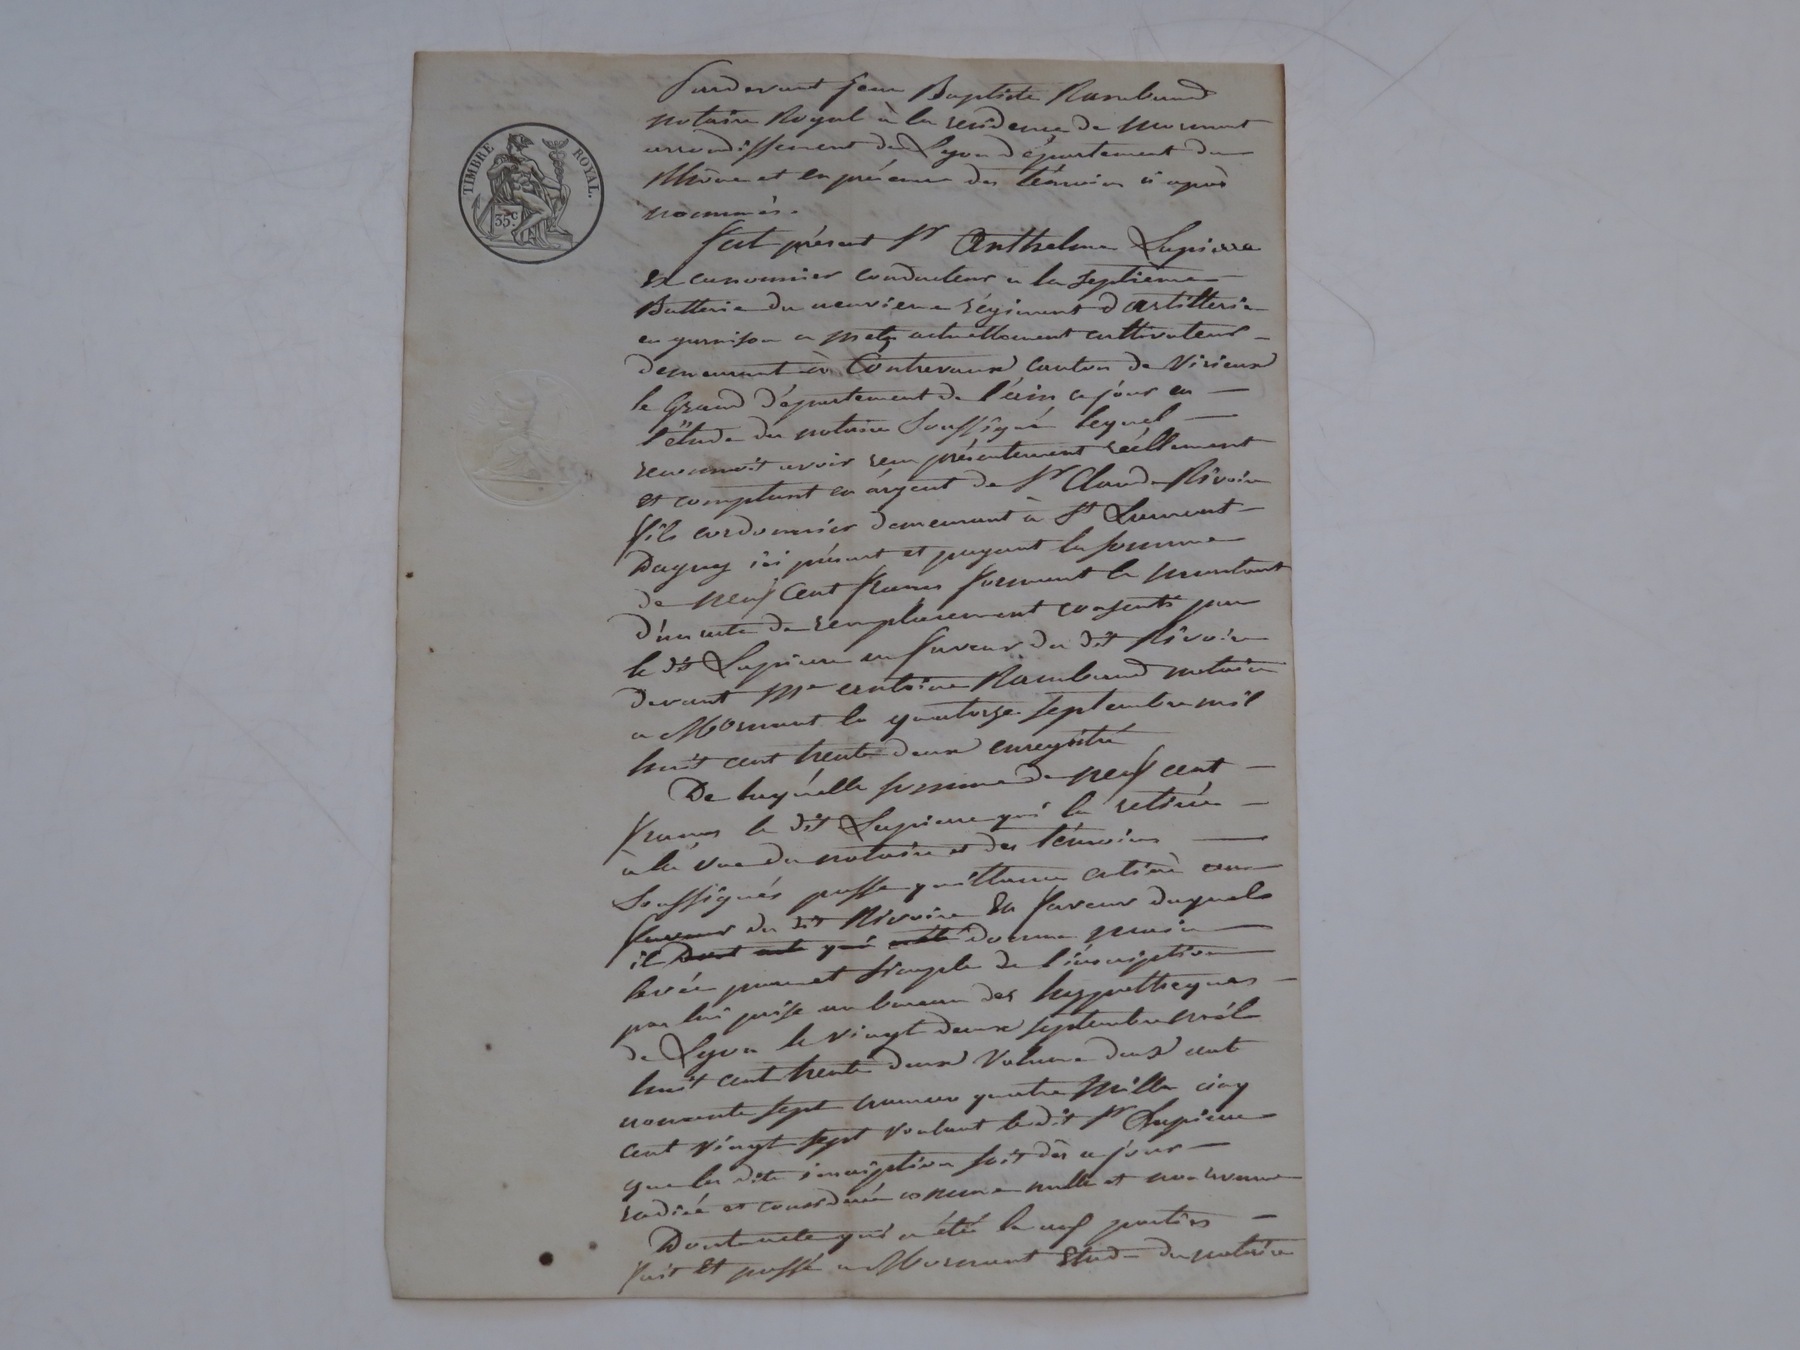 TIMBRE ROYAL.
35c.
Pardevant Jean Baptiste Rambaud
notaire Royal à la residence de mornant
arrondissement de Lyon département du
Rhône et en présence des témoins ci après
nommés.
fut présent Sr Anthelme Lapierre
ex canonnier conducteur a la septième
Batterie du neuvieme régiment d'artillerie
en garnison a metz actuellement cultivateur
demeurant à Contrevaux canton de Virieux
le Grand département de l'ain ce jour en
l'étude du notaire soussigné lequel
reconnoit avoir reçu présentement réellement
et comptant en argent de Sr Claude Rivoire
fils cordonnier demeurant à St Laurent
Dagny ici présent et payant la somme
de neuf cent francs formant le montant
d'un acte de remplacement consenti par
le dit Lapierre en faveur du dit Rivoire
devant Me antoine Rambaud notaire
a Mornant le quatorze septembre mil
huit cent trente deux enregistré
De laquelle somme de neuf cent
francs le dit Lapierre qui la retirée
à la vue du notaire et des témoins
soussignés passe quittance entière en
faveur du dit Rivoire en faveur duquel
il Dont acte qui donne main
levée pure et simple de l'inscription
par lui prise au bureau des hypothecques
de Lyon le vingt deux septembre mil
huit cent trente deux volume deux cent
nonante sept numero quatre mille cinq
cent vingt sept voulant le dit Sr Lapierre
que la dite inscription soit dès ce jour
radiée et considérée comme nulle et non avenue
Dont acte qui a été lu aux parties
fait et passé a Mornant Etude du notaire